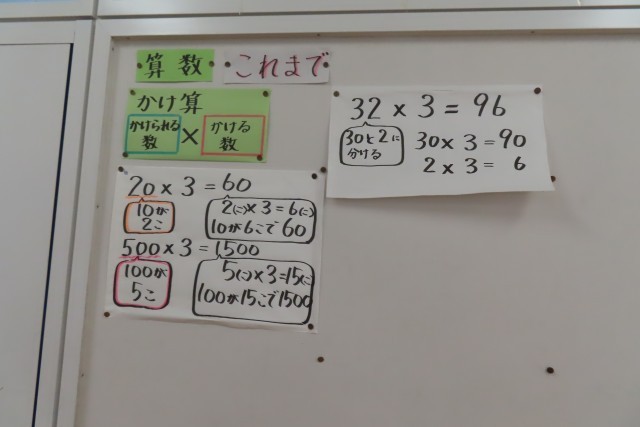 算数
これまで
かけ算
かけられる
数
×
かける
数
20×3=60
10が
2こ
2(こ)×3=6(こ)
10が6こで60
500×3=1500
100が
5こ
5(こ)×3=15(こ)
100が15こで1500
32×3=96
30と2に
分ける
30×3=90
2×3=6